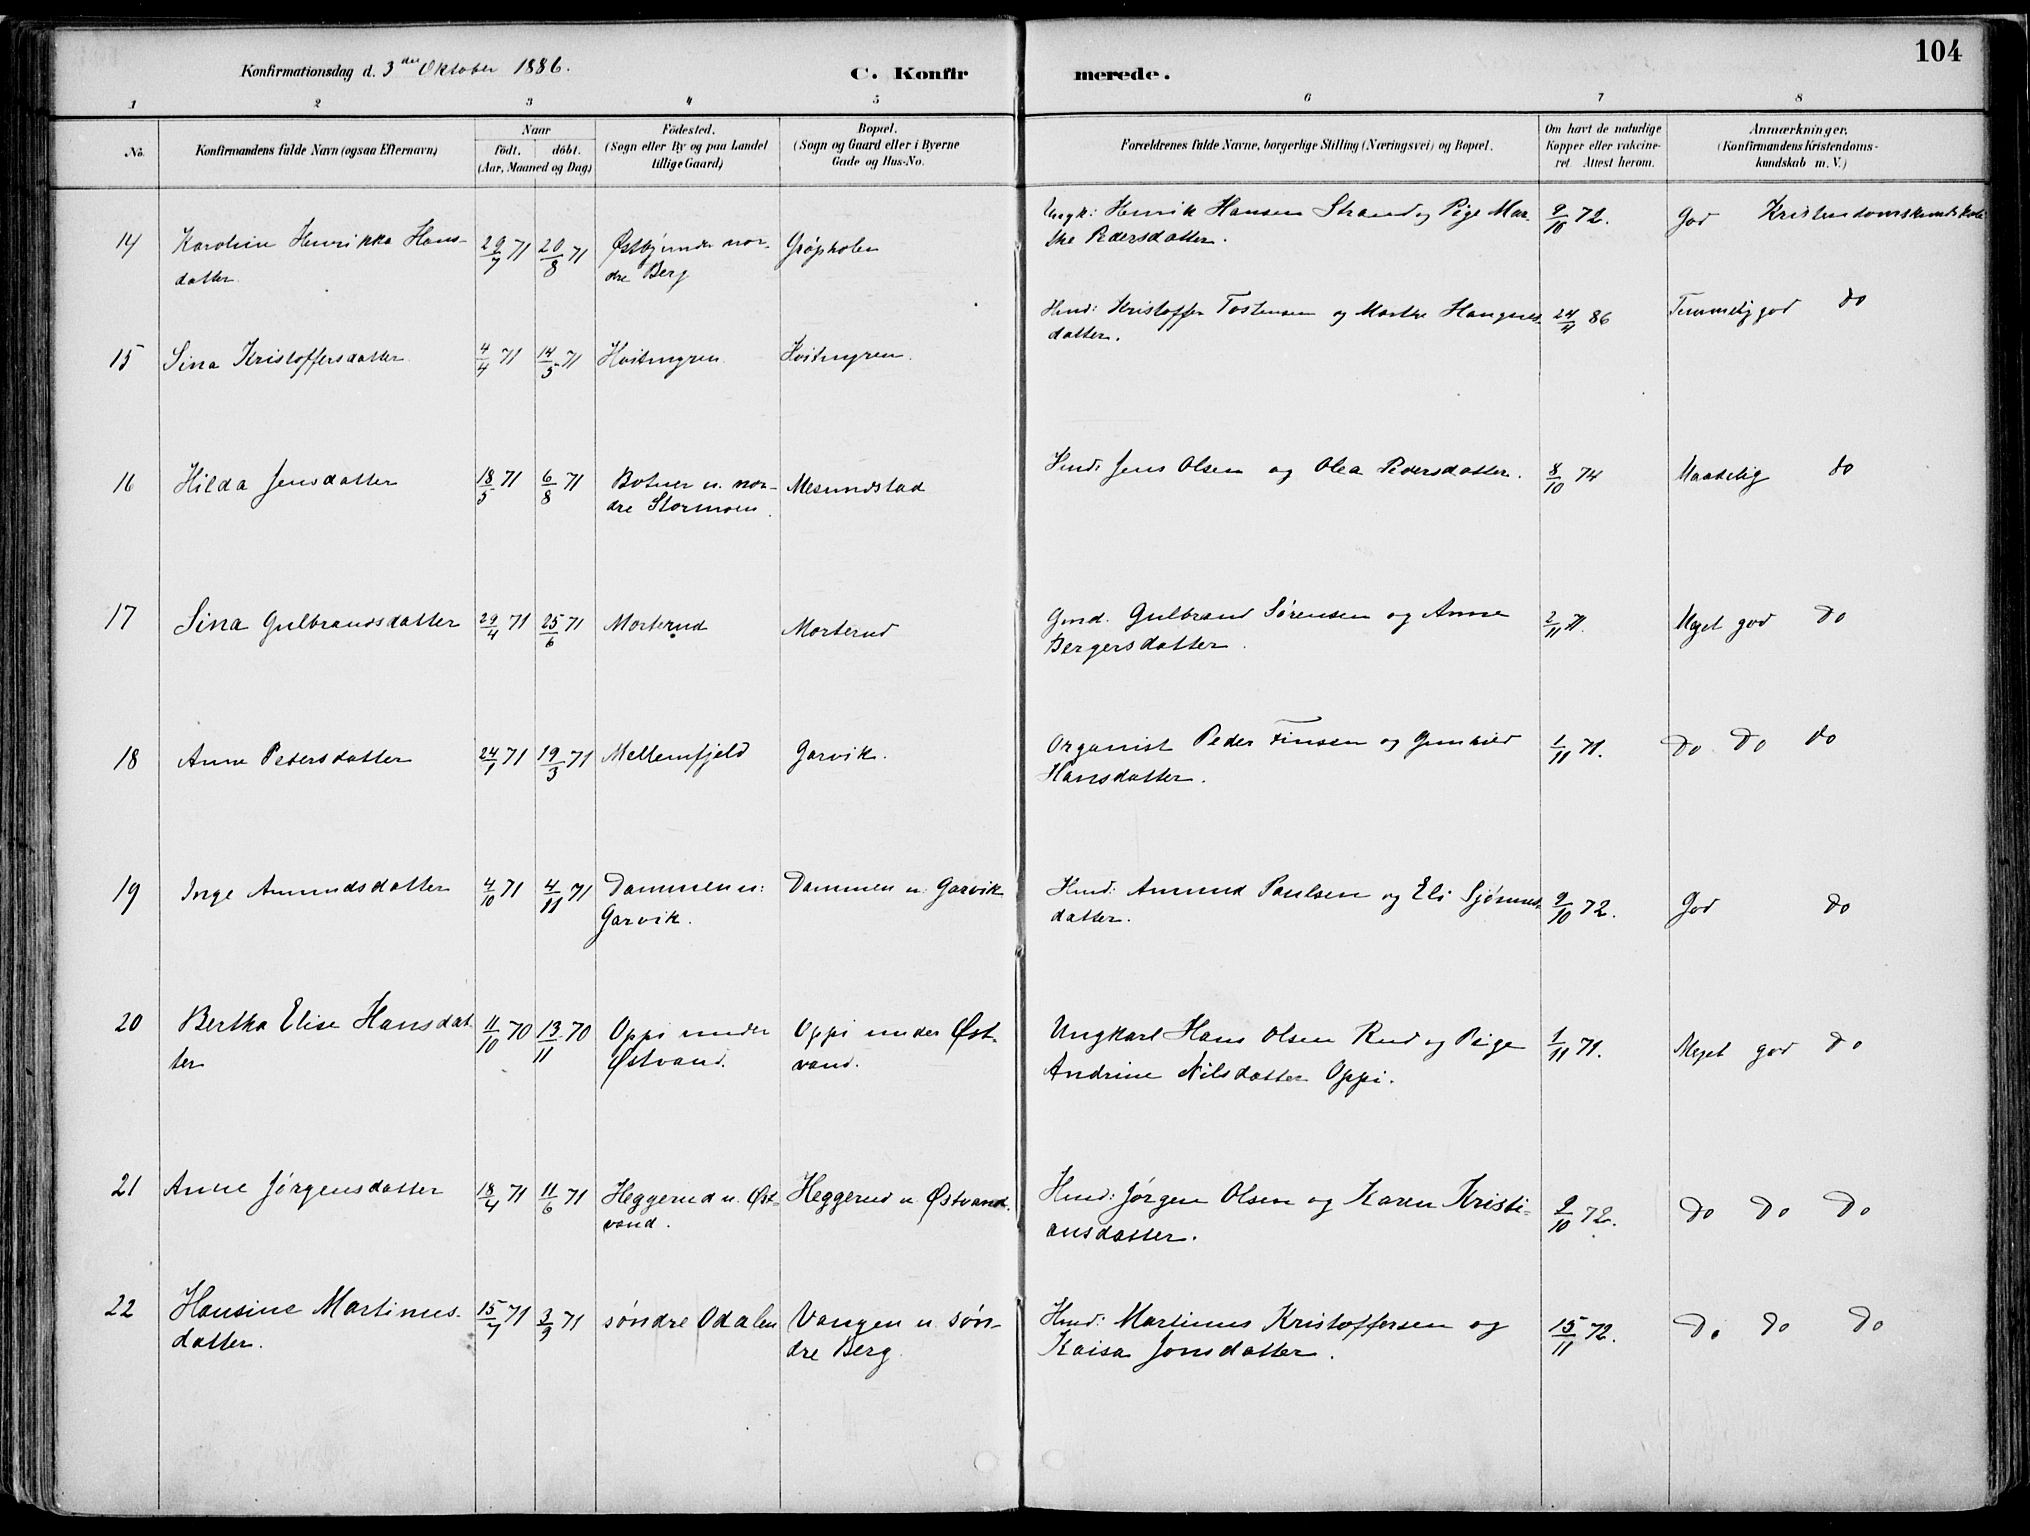 104
Konfirmationsdag d. 3die Oktober 1886.
C. Konfirmerede.
1 2 3 4 5 6 7 8
No.
Konfirmandens fulde Navn (ogsaa Efternavn)
Naar
födt. döbt.
(Aar, Maaned og Dag)
Födested.
(Sogn eller By og paa Landet
tillige Gaard)
Bopæl.
(Sogn og Gaard eller i Byerne
Gade og Hus-No.
Forældrenes fulde Navne, borgerlige Stilling (Næringsvei) og Bopæl.
Om havt de naturlige
Kopper eller vakcine-
ret Attest herom.
Anmærkninger.
(Konfirmandens Kristendoms-
kundskab m. V.)
14 Karoline Henrikka Hans- 29/7 71 20/8 71 nor- Ungk: Henrik Hansen Strand og Pige Mar- 9/10 72. God Kristendomskundskab
datter dre Berg the Pedersdatter.
15 Sina Kristoffersdatter 4/4 71 14/5 71 Hvitmyren Hvitmyren. Hmd: Kristoffer Tostensen og Marthe 24/4 86 Temmelig god do
datter.
16 Hilda Jensdatter 18/5 71 6/8 71 Botner u. nor- Mesundstad Hmd: Jens Olsen og Olea Pedersdatter. 8/10 74 Maadelig do
dre Stormoen.
17 Sina Gulbrandsdatter 29/4 71 25/6 71 Morterud Morterud Gmd. Gulbrand Sørensen og Anne 2/11 71. Meget god do
Bergersdatter.
18 Anne Pedersdatter 24/1 71 19/3 71 Mellemfjeld Garvik. Organist Peder Finsen og Gunhild 1/11 71. do do do
Hansdatter.
19 Inge Amundsdatter 4/10 71 4/11 71 Dammen u: Dammen u. Garvik Hmd: Amund Paulsen og Eli 9/10 72. God do
Garvik. datter.
20 Bertha Elise Hansdat- 11/10 70 13/11 70 Oppi under Oppi under Øst- Ungkarl Hans Olsen Rud og Pige 1/11 71. Meget god do
ter Østvand. vand. Andrine Nilsdatter Oppi.
21 Anne Jørgensdatter 18/4 71 11/6 71 Heggerud u. Øst- Heggerud u Østvand. Hmd: Jørgen Olsen og Karen Kristi- 9/10 72. do do do
vand. ansdatter.
22 Hansine Martinus- 15/7 71 3/9 71 søndre Odalen Vangen u. søn- Hmd: Martinus Kristoffersen og 15/11 72. do do do
datter. dre Berg. Kaisa Jonsdatter.